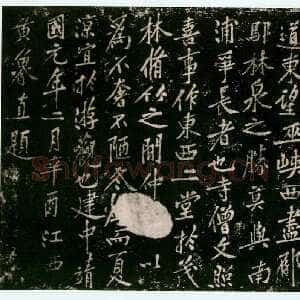 道東望巫峽西盡郁
鄢林泉之勝莫與南
浦爭長者也寺僧文照
喜事作東西二堂於茂
林脩竹之間仲以
為不奢不陋冬而夏
涼宜於遊觀也建中靖
國元年二月辛酉江西
黃魯直題